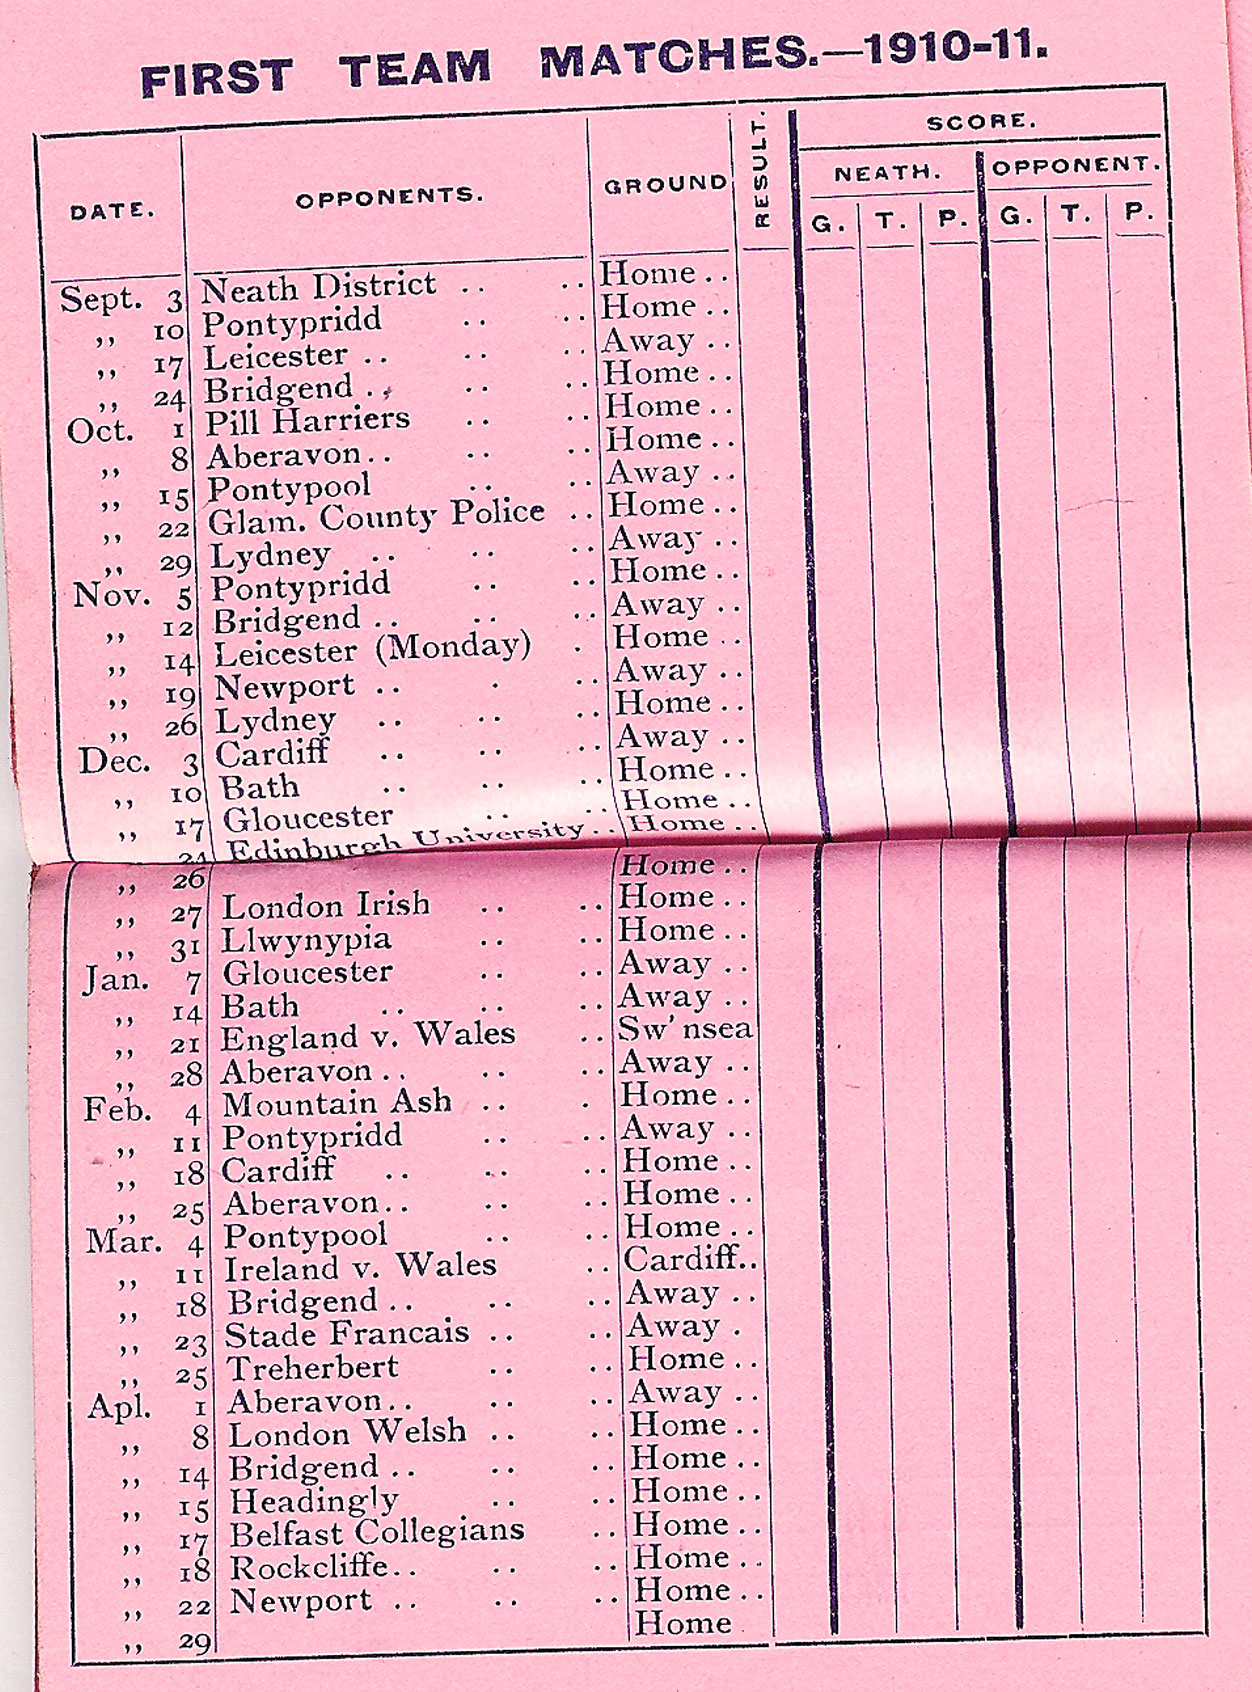 FIRST TEAM MATCHES.—1910-11.
DATE. OPPONENTS. GROUND RESULT. SCORE.
NEATH. OPPONENT.
G. T. P. G. T. P.
Sept. 3 Neath District .. .. Home ..
,, 10 Pontypridd .. .. Home ..
,, 17 Leicester .. .. .. Away ..
,, 24 Bridgend .. .. .. Home ..
Oct. 1 Pill Harriers .. .. Home ..
,, 8 Aberavon .. .. .. Home ..
,, 15 Pontypool .. .. Away ..
,, 22 Glam. County Police .. Home ..
,, 29 Lydney .. .. .. Away ..
Nov. 5 Pontypridd .. .. Home ..
,, 12 Bridgend .. .. .. Away ..
,, 14 Leicester (Monday) . Home ..
,, 19 Newport .. . .. Away ..
,, 26 Lydney .. .. .. Home ..
Dec. 3 Cardiff .. .. .. Away ..
,, 10 Bath .. .. .. Home ..
,, 17 Gloucester .. .. Home ..
24 Edinburgh University .. Home ..
,, 26 Home ..
,, 27 London Irish .. .. Home ..
,, 31 Llwynypia .. .. Home ..
Jan. 7 Gloucester .. .. Away ..
,, 14 Bath .. .. .. Away ..
,, 21 England v. Wales .. Sw'nsea
,, 28 Aberavon .. .. .. Away ..
Feb. 4 Mountain Ash .. . Home ..
,, 11 Pontypridd .. .. Away ..
,, 18 Cardiff .. .. .. Home ..
,, 25 Aberavon .. .. .. Home ..
Mar. 4 Pontypool .. .. Home ..
,, 11 Ireland v. Wales .. Cardiff ..
,, 18 Bridgend .. .. .. Away ..
,, 23 Stade Francais .. .. Away .
,, 25 Treherbert .. .. Home ..
Apl. 1 Aberavon .. .. .. Away ..
,, 8 London Welsh .. .. Home ..
,, 14 Bridgend .. .. .. Home ..
,, 15 Headingly .. .. Home ..
,, 17 Belfast Collegians .. Home ..
,, 18 Rockcliffe .. .. .. Home ..
,, 22 Newport .. .. .. Home ..
,, 29 Home